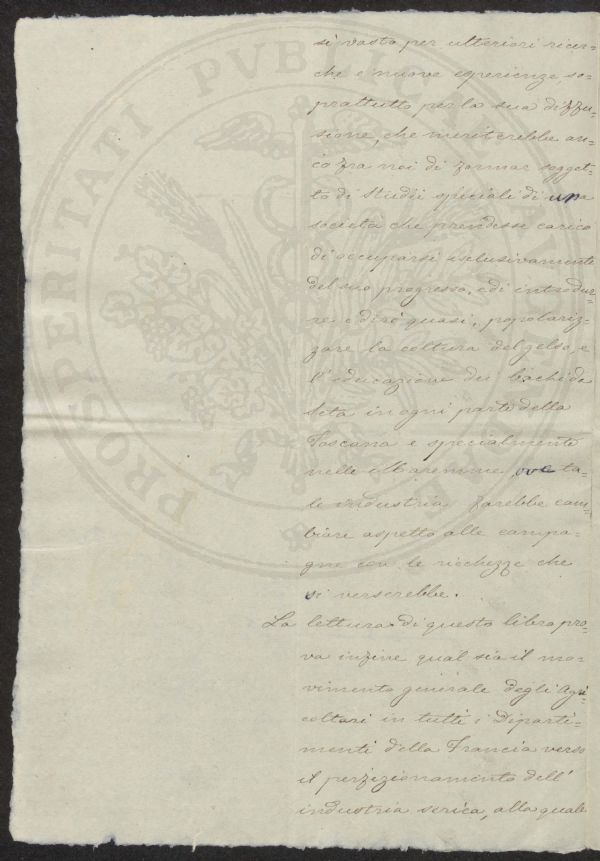 si vasto per ulteriori ricer-
che e nuove esperienze so-
prattutto per la sua diffu-
sione, che meriterebbe an-
co fra noi di formar sogget-
to di studii speciali di una
società che prendesse carico
di occuparsi esclusivamente
del suo progresso, e di introdur-
re e dirò quasi, popolariz-
zare la coltura del gelso, e
l'educazione dei bachi da
seta in ogni parte della
Toscana e specialmente
nelle Maremme, ove ta-
le industria farebbe cam-
biare aspetto alle campa-
gne con le ricchezze che
vi verserebbe.
La lettura di questo libro pro-
va infine qual sia il mo-
vimento generale degli Agri-
coltori in tutti i Diparti-
menti della Francia verso
il perfezionamento dell'
industria serica, alla quale
PROSPERITATI PVBLICAE